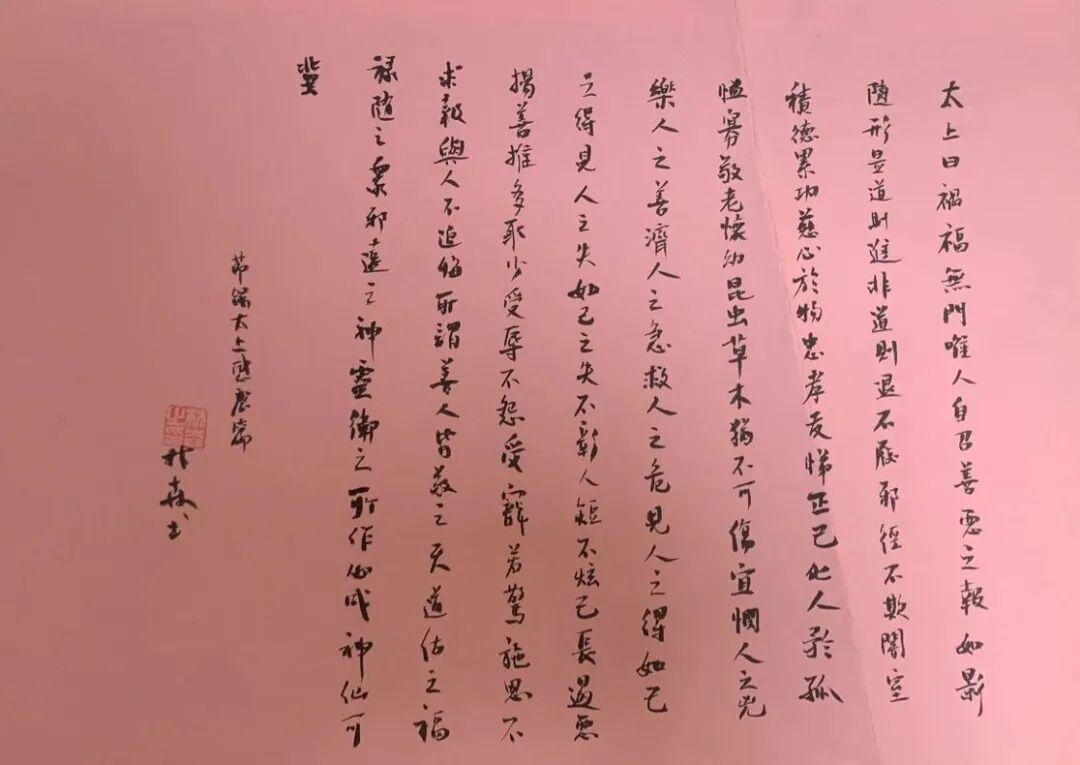 太上曰禍福無門唯人自召善惡之報如影
隨形是道則進非道則退不履邪徑不欺闇室
積德累功慈心於物忠孝友悌正己化人矜孤
恤寡敬老懷幼昆虫草木猶不可傷宜憫人之兇
樂人之善濟人之急救人之危見人之得如己
之得見人之失如己之失不彰人短不炫己長遏惡
揚善推多取少受辱不怨受寵若驚施恩不
求報與人不追悔所謂善人皆敬之天道佑之福
祿隨之衆邪遠之神靈衛之所作必成神仙可
冀
節錄太上感應篇
林森書